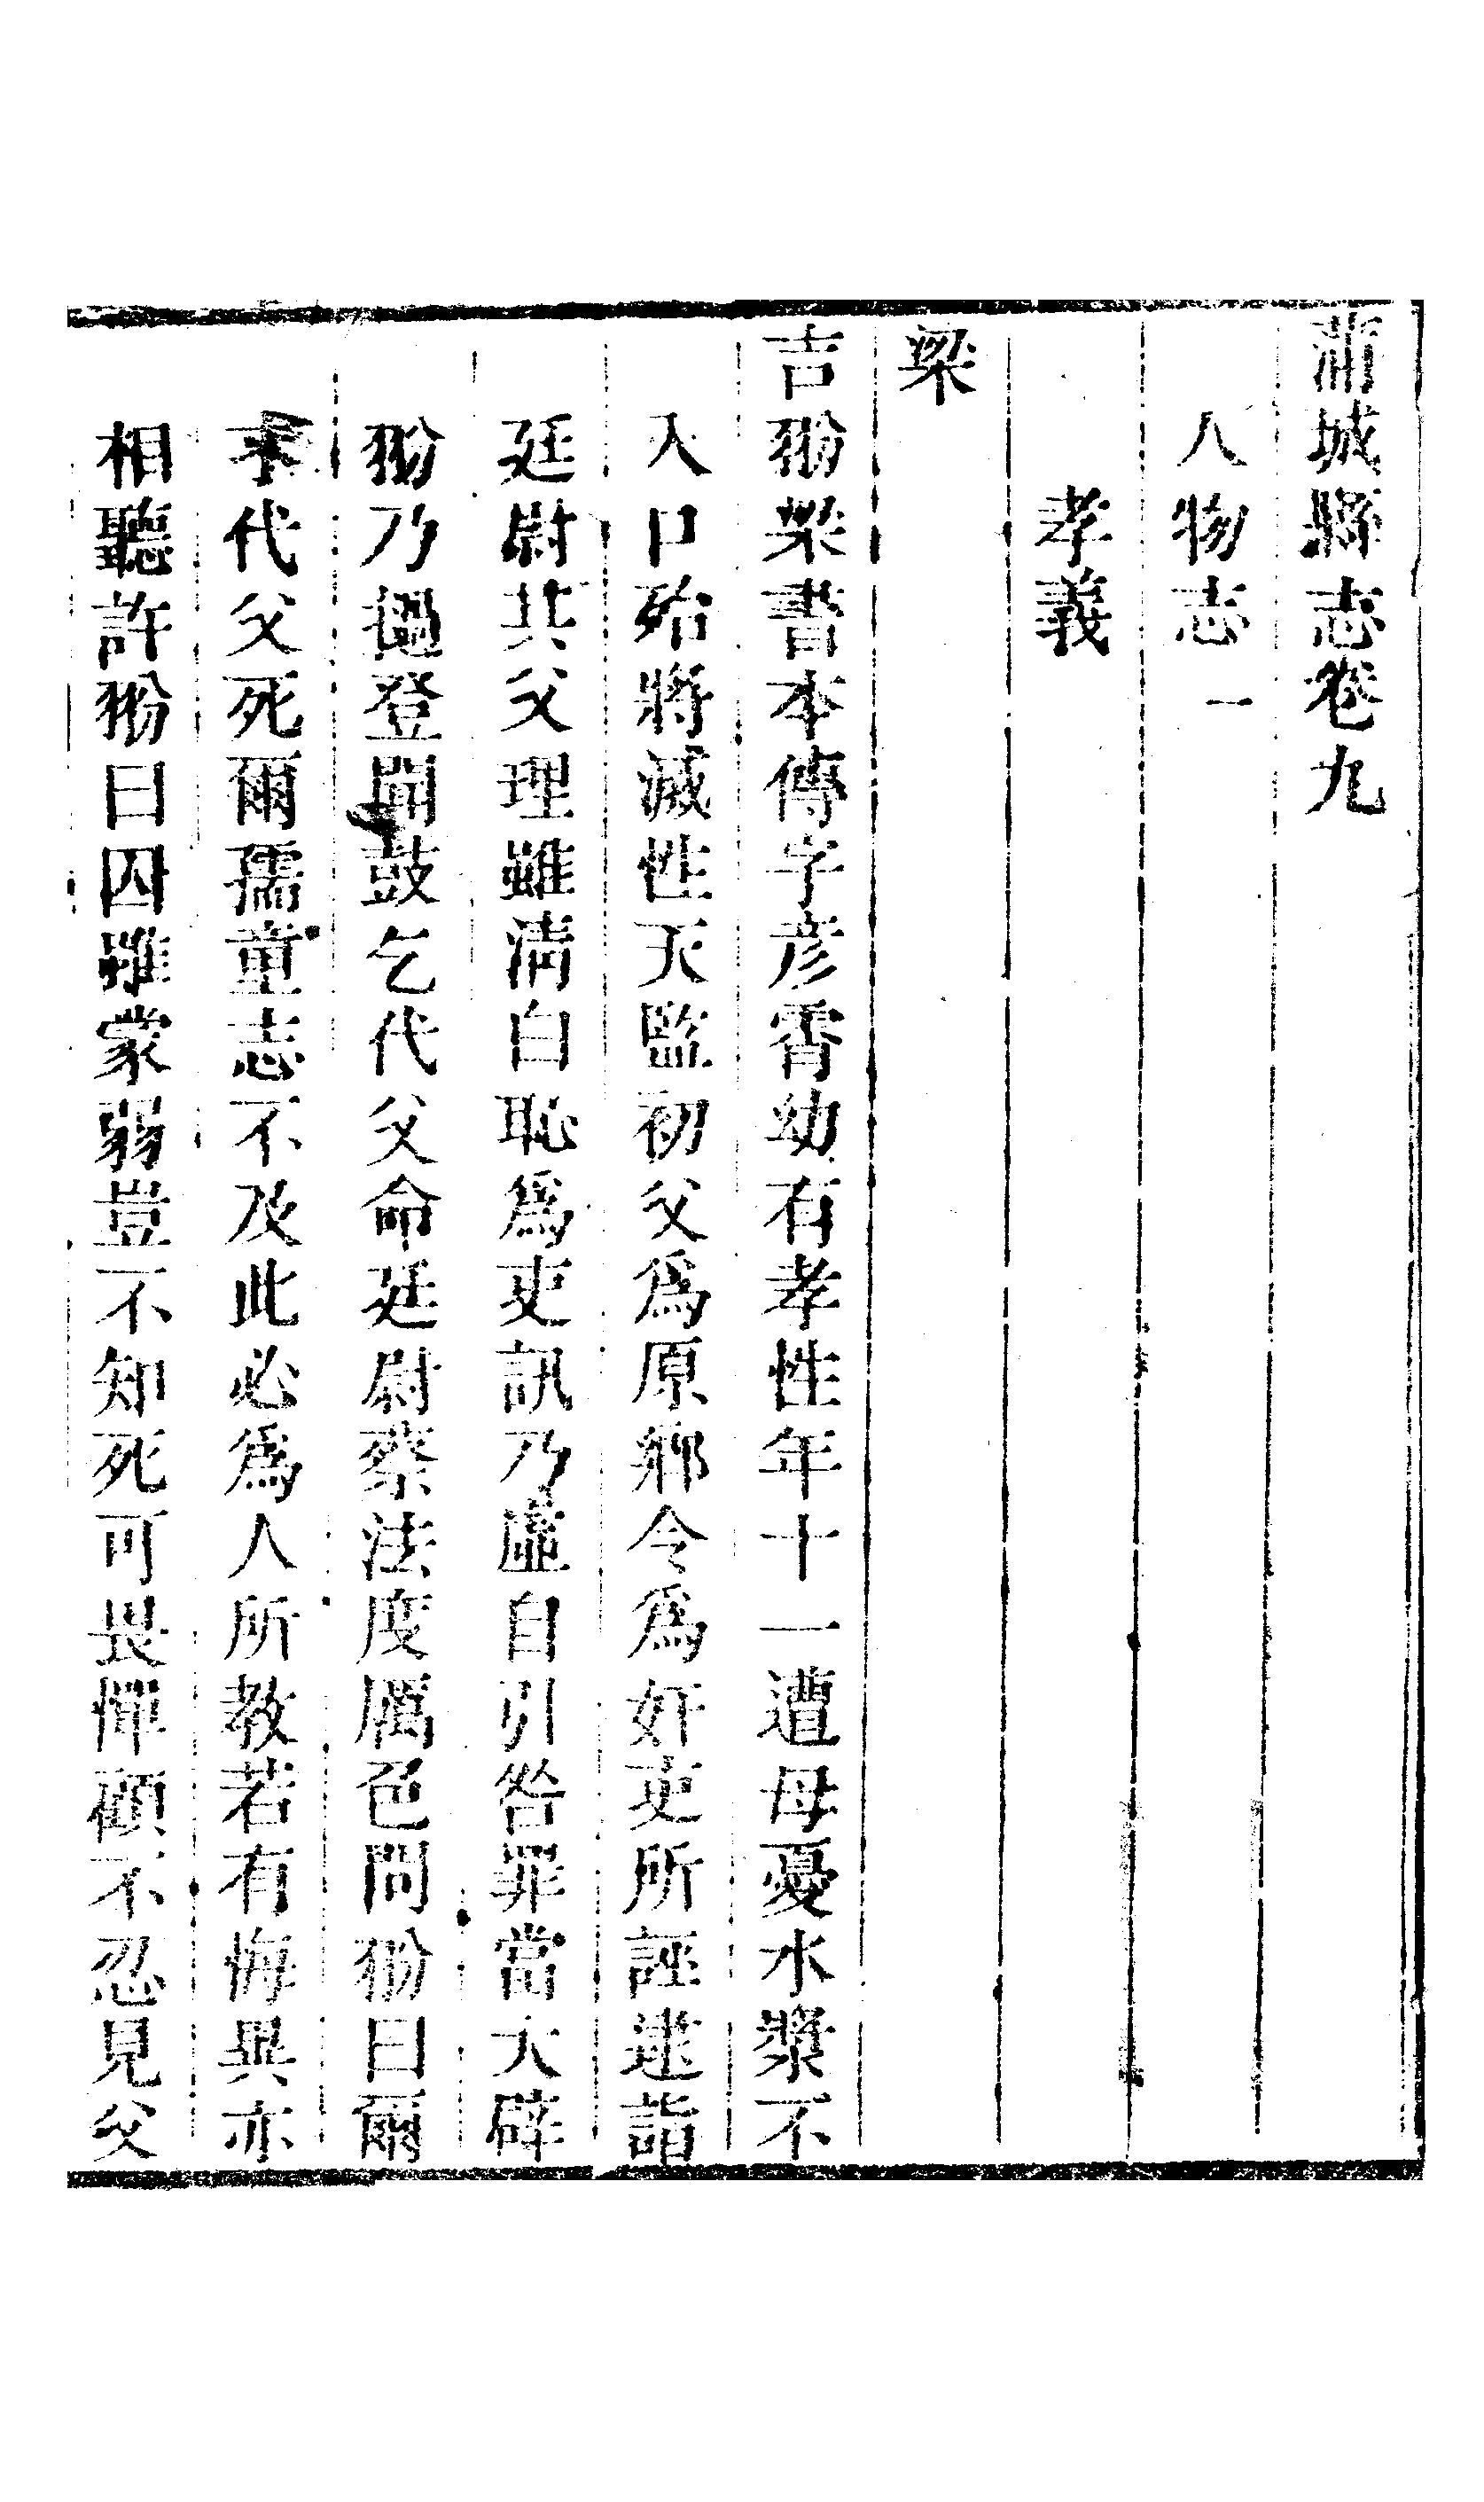 蒲城縣志卷九
人物志一
孝義
梁
吉翂梁書本傳字彥霄幼有孝性年十一遭母憂水漿不
入口殆將滅性天監初父爲原鄉令爲奸吏所誣逮詣
廷尉其父理雖清白恥爲吏訊乃虛自引咎罪當大辟
翂乃撾登聞鼓乞代父命廷尉蔡法度厲色問翂曰爾
求代父死爾孺童志不及此必爲人所教若有悔異亦
相聽許翂曰囚雖蒙弱豈不知死可畏憚顧不忍見父